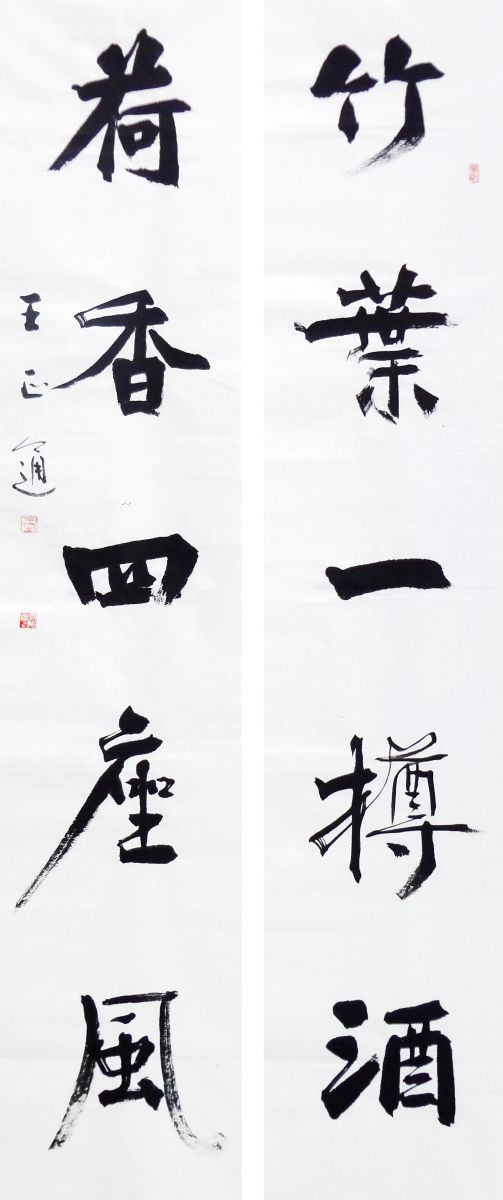 竹葉一樽酒
荷香四座風
王正通